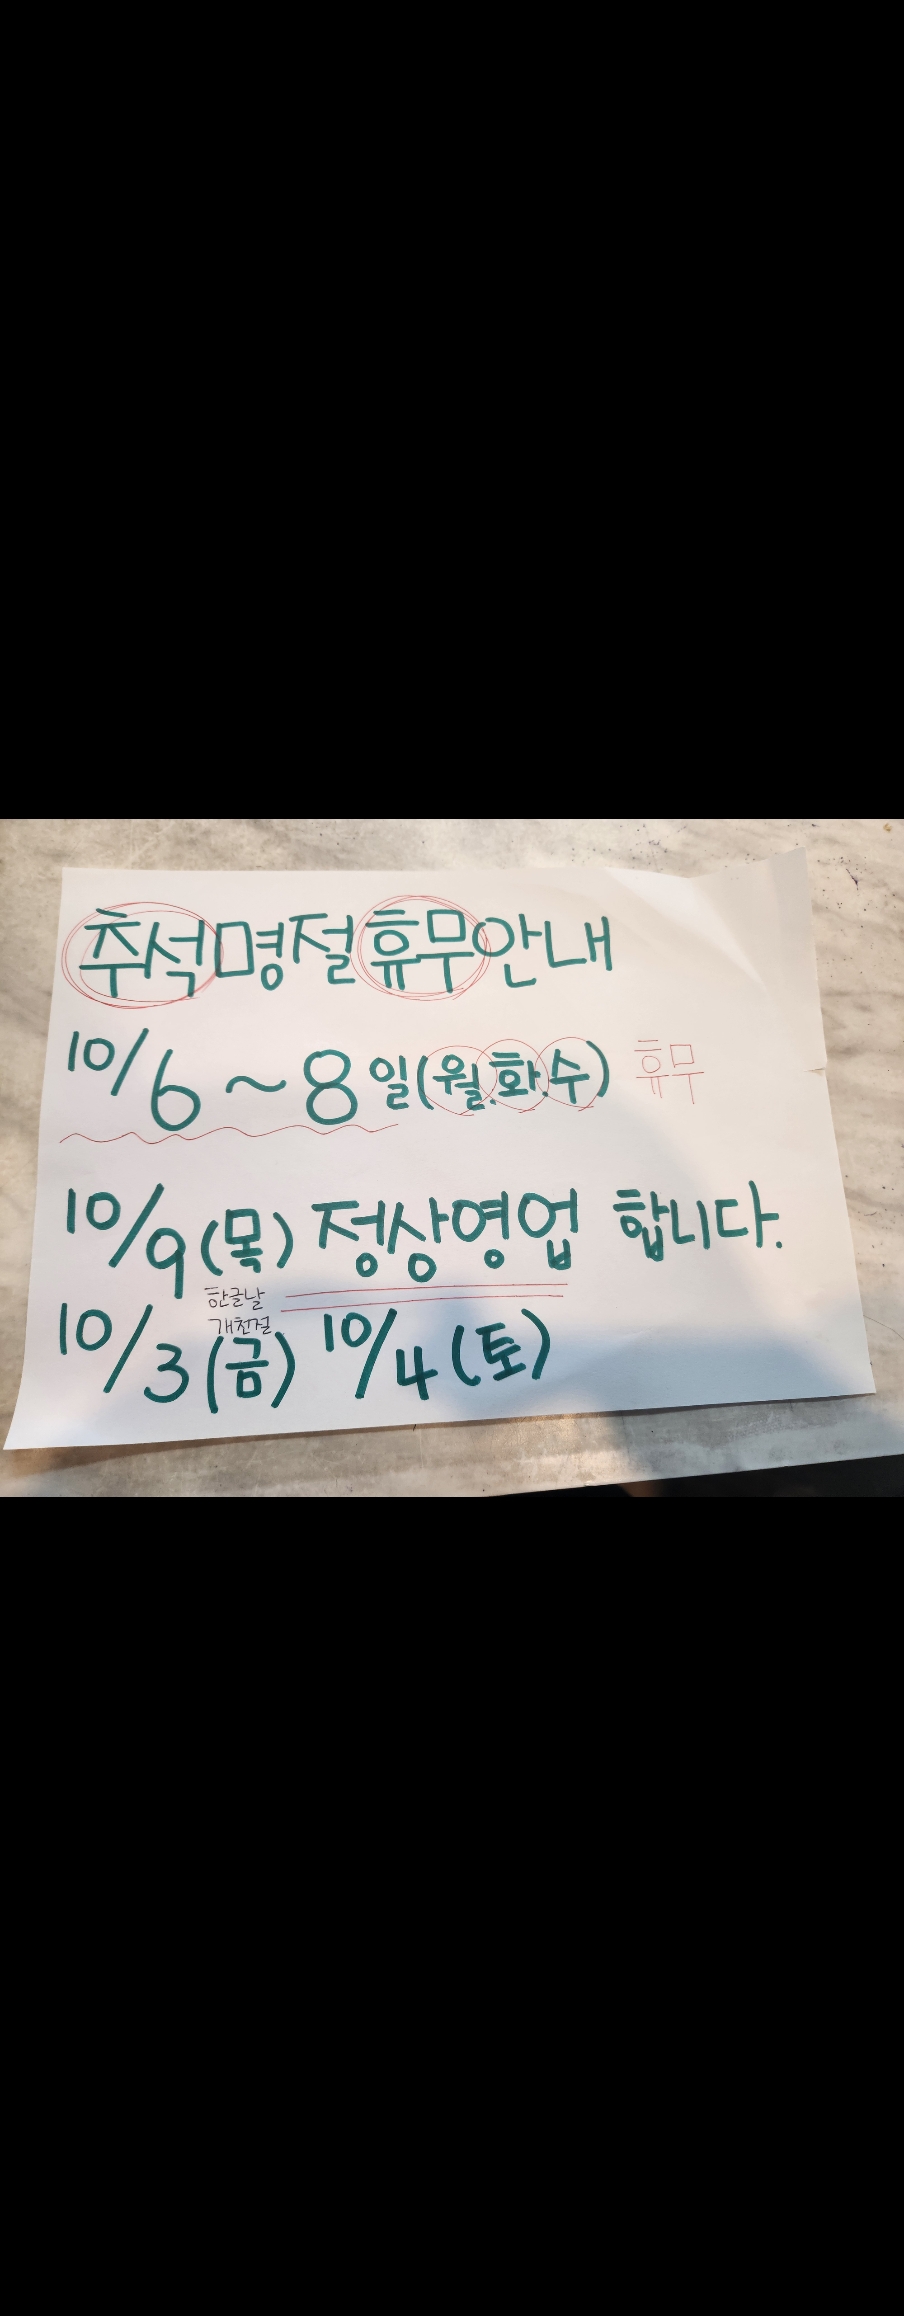 추석명절휴무안내
10/6~8일(월.화.수) 휴무
10/9(목) 정상영업 합니다.
한글날
개천절
10/3(금) 10/4(토)